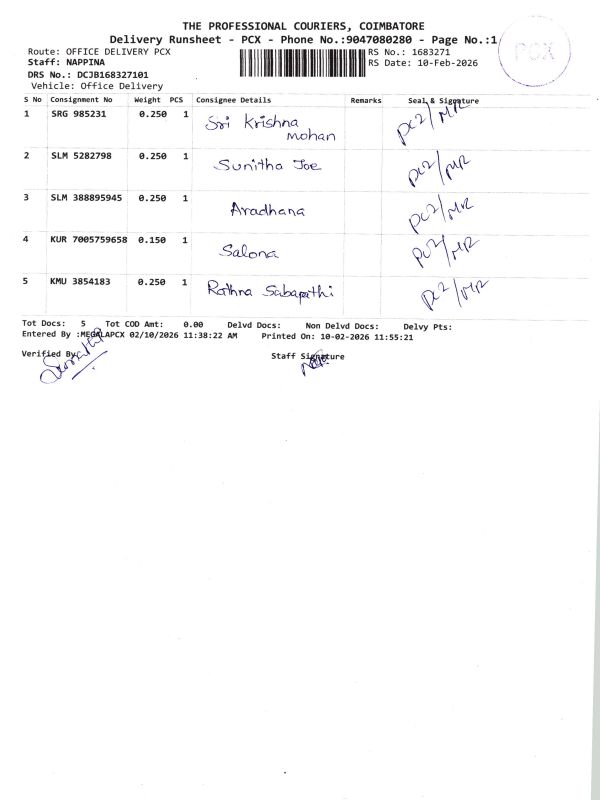 THE PROFESSIONAL COURIERS, COIMBATORE
Delivery Runsheet - PCX - Phone No.:9047080280 - Page No.:1
PCX
Route: OFFICE DELIVERY PCX RS No.: 1683271
Staff: NAPPINA RS Date: 10-Feb-2026
DRS No.: DCJB168327101
Vehicle: Office Delivery
S No Consignment No Weight PCS Consignee Details Remarks Seal & Signature
1 SRG 985231 0.250 1 Sri Krishna mohan PC2/MR
2 SLM 5282798 0.250 1 Sunitha Joe PC2/MR
3 SLM 388895945 0.250 1 Aradhana PC2/MR
4 KUR 7005759658 0.150 1 Salona PC2/MR
5 KMU 3854183 0.250 1 Rathna Sabapathi PC2/MR
Tot Docs: 5 Tot COD Amt: 0.00 Delvd Docs: Non Delvd Docs: Delvy Pts:
Entered By :MEGALAPCX 02/10/2026 11:38:22 AM Printed On: 10-02-2026 11:55:21
Verified By: Staff Signature